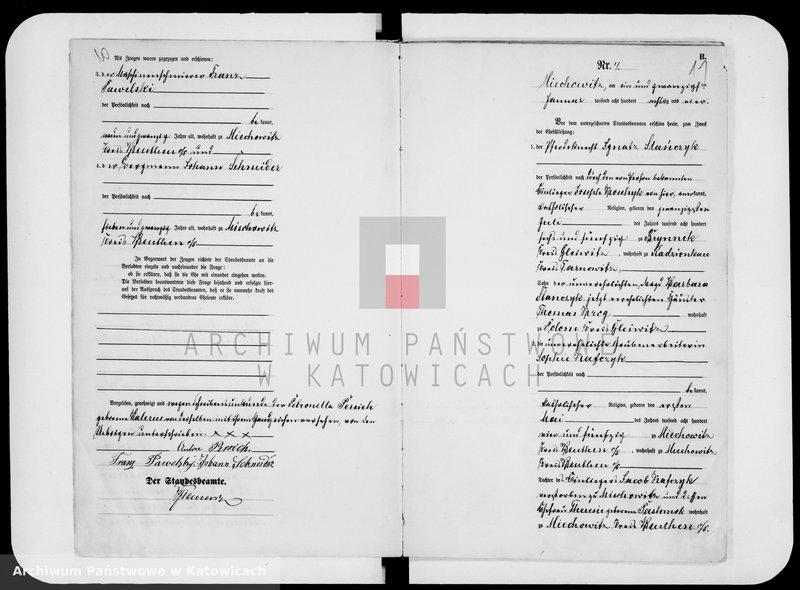 10
Als Zeugen waren zugezogen und erschienen:
3. der Maschinenschmierer Franz
Pawelski
der Persönlichkeit nach
be kannt,
neun und zwanzig Jahre alt, wohnhaft zu Miechowitz
Kreis Beuthen o/S und
4. der Bergmann Johann Schneider
der Persönlichkeit nach
be kannt,
sieben und zwanzig Jahre alt, wohnhaft zu Miechowitz
Kreis Beuthen o/S.
In Gegenwart der Zeugen richtete der Standesbeamte an die
Verlobten einzeln und nacheinander die Frage:
ob sie erklären, daß sie die Ehe mit einander eingehen wollen.
Die Verlobten beantworteten diese Frage bejahend und erfolgte hierauf
der Ausspruch des Standesbeamten, daß er sie nunmehr kraft des
Gesetzes für rechtmäßig verbundene Eheleute erkläre.
Vorgelesen, genehmigt und wegen Schreibensunkunde der Petronella
geborene von derselben mit ihrem Handzeichen versehen, von den
Uebrigen unterschrieben. x x x
Anton
Franz Pawelski Johann Schneider
Der Standesbeamte.
B.
17
Nr. 1
Miechowitz, am ein und zwanzigsten
Januar tausend acht hundert achtzig und vier.
Vor dem unterzeichneten Standesbeamten erschien heute, zum Zweck
der Eheschließung:
1. der Pferdeknecht Ignatz Stańczyk
der Persönlichkeit nach durch den von Person bekannten
Einlieger von hier, anerkannt,
katholischer Religion, geboren den zwanzigsten
Juli des Jahres tausend acht hundert
sechs und fünfzig zu Brynnek
Kreis Gleiwitz, wohnhaft zu Radzionkau
Kreis Tarnowitz,
Sohn der unverehelichten Magd Barbara
Stańczyk, jetzt verehelichten Häusler
Thomas wohnhaft
zu Kreis Gleiwitz
2. die unverehelichte Grubenarbeiterin
Sophie Kafczyk
der Persönlichkeit nach
be kannt,
katholischer Religion, geboren den ersten
Mai des Jahres tausend acht hundert
vier und fünfzig zu Miechowitz
Kreis Beuthen o/S wohnhaft zu Miechowitz
Kreis Beuthen o/S
Tochter des Einliegers Jacob Kafczyk
verstorben zu Miechowitz und dessen
Ehefrau Theresie geborene Pasternok wohnhaft
zu Miechowitz Kreis Beuthen o/S.
ARCHIWUM PAŃSTWOWE
W KATOWICACH
Archiwum Państwowe w Katowicach